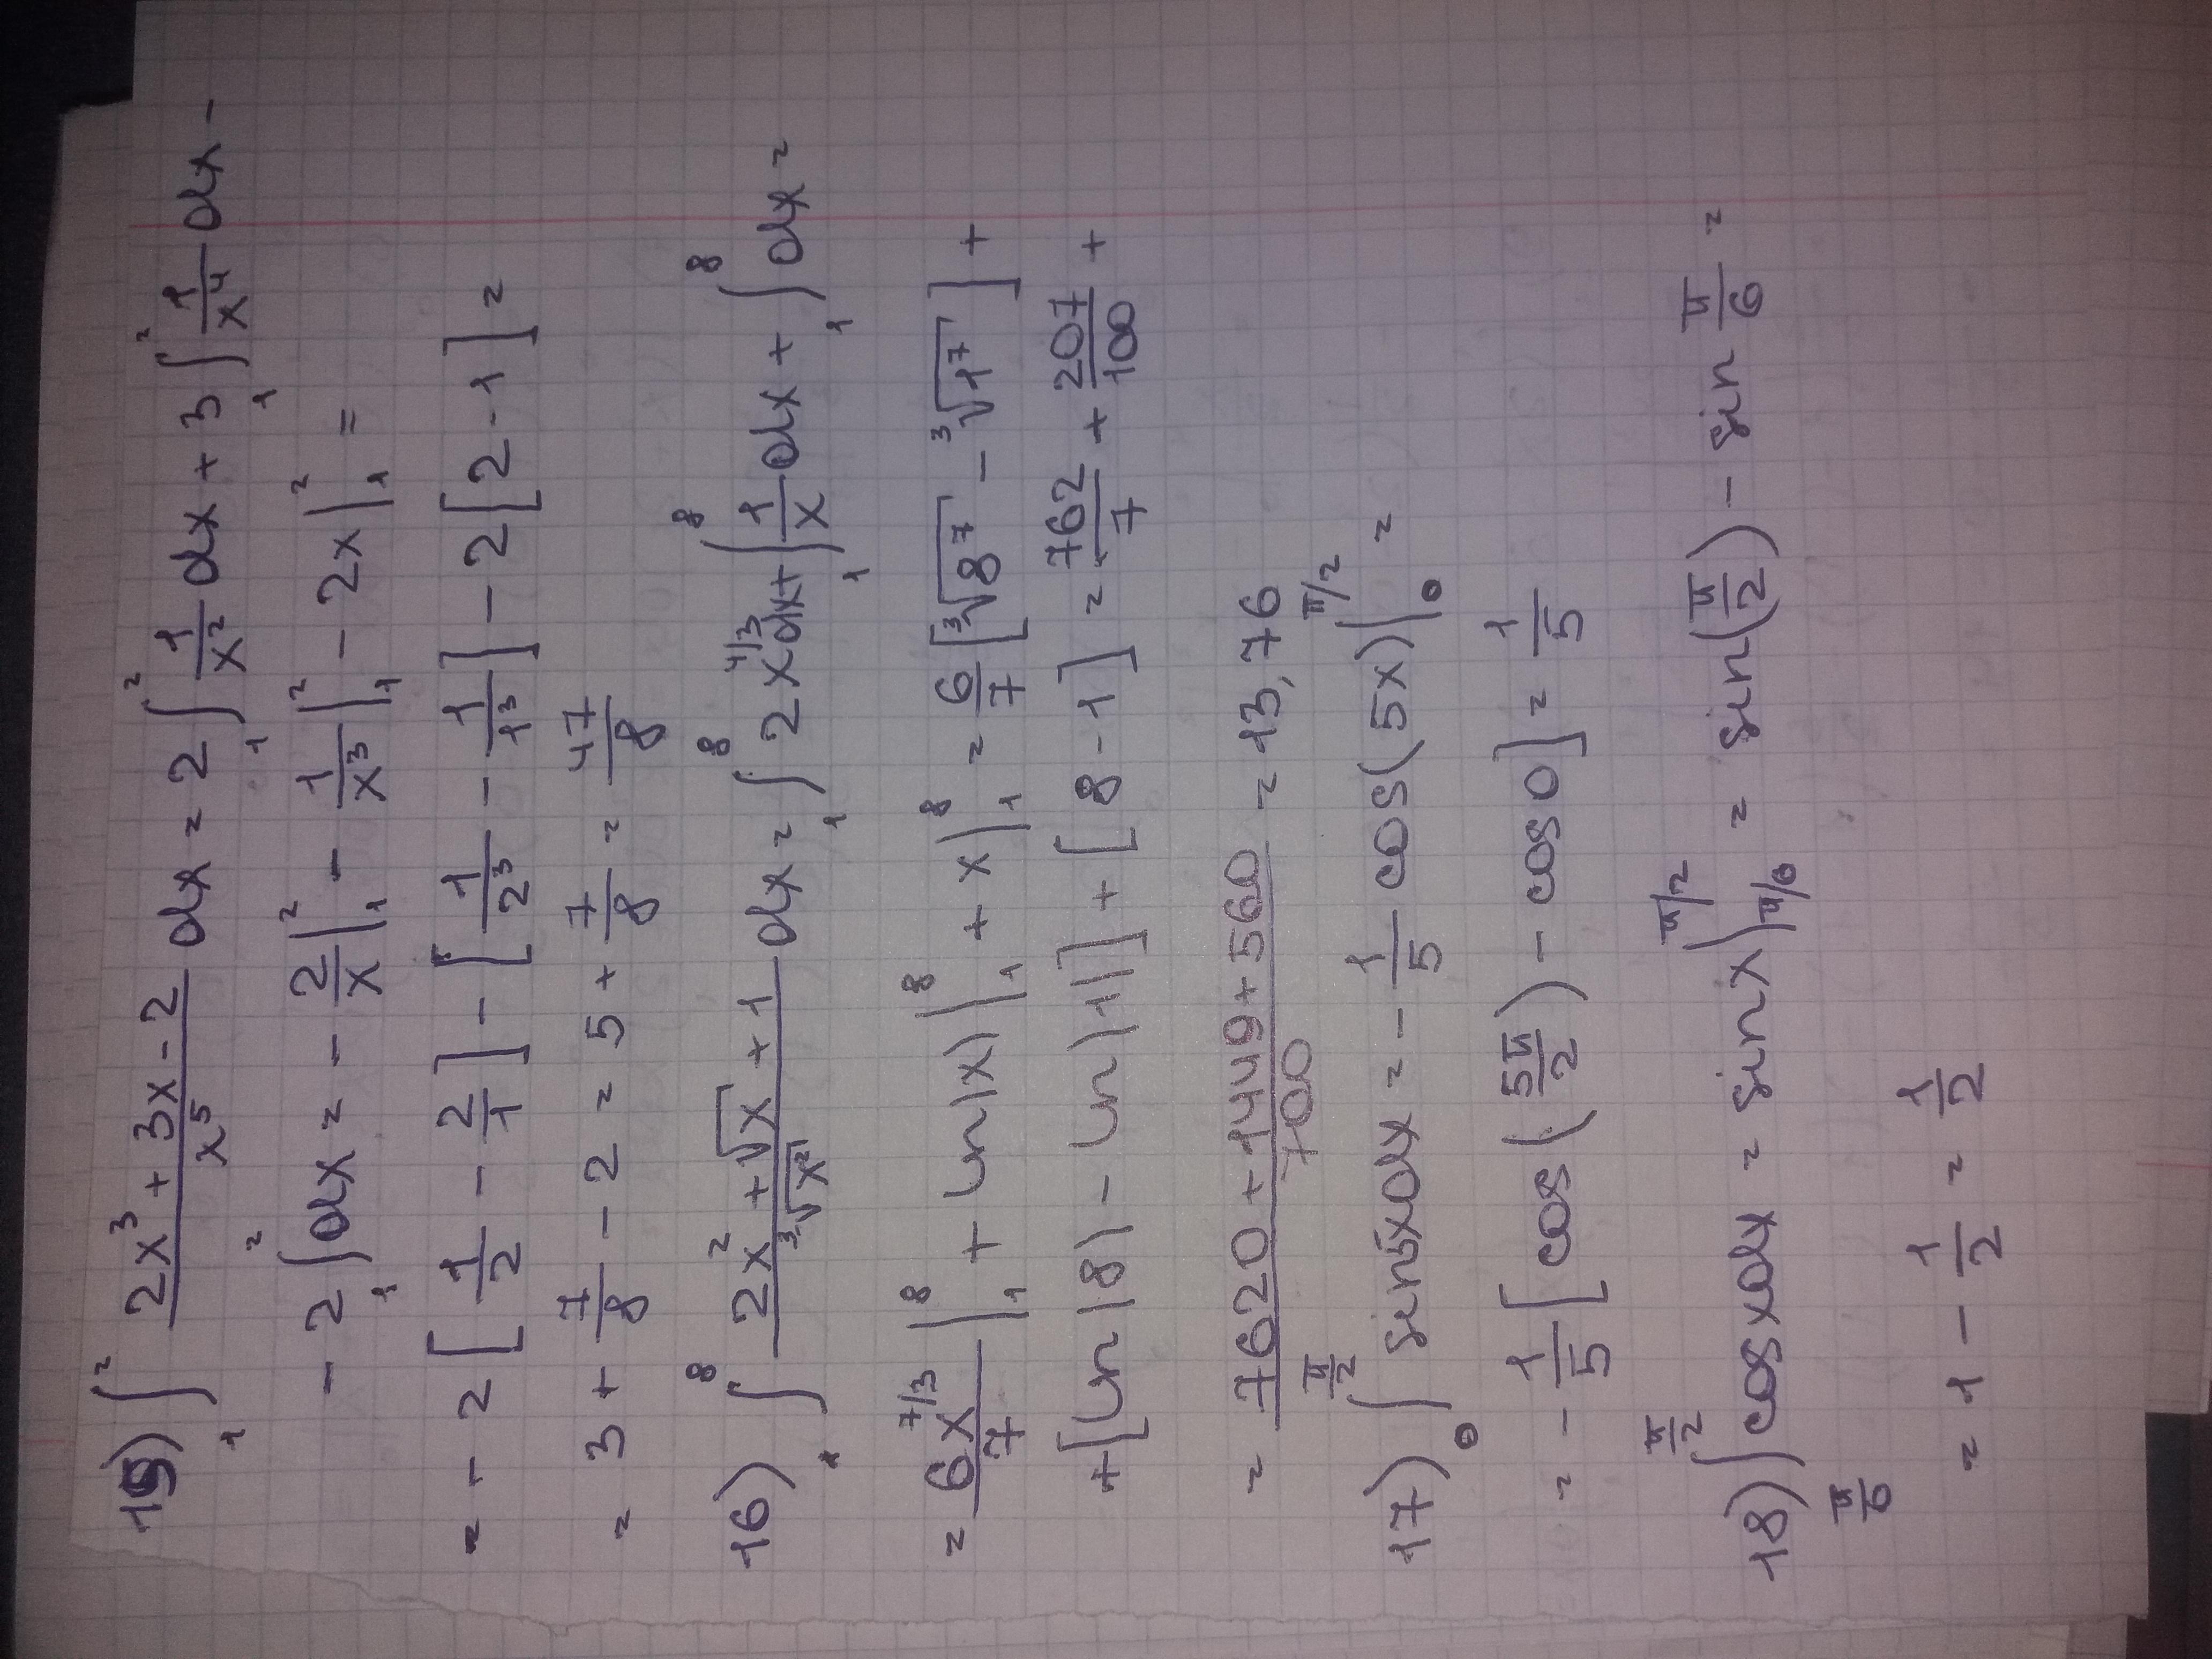 15) ∫₁² (2x³ + 3x - 2)/x⁵ dx = 2 ∫₁² 1/x² dx + 3 ∫₁² 1/x⁴ dx -
- 2 ∫₁² dx = - 2/x |₁² - 1/x³ |₁² - 2x |₁² =
= - 2 [1/2 - 2/1] - [1/2³ - 1/1³] - 2 [2 - 1] =
= 3 + 7/8 - 2 = 5 + 7/8 = 47/8
16) ∫₁⁸ (2x² + √x + 1)/∛x² dx = ∫₁⁸ 2x^(4/3) dx + ∫₁⁸ 1/x dx + ∫₁⁸ dx =
= 6x^(7/3)/7 |₁⁸ + ln|x| |₁⁸ + x |₁⁸ = 6/7 [∛8⁷ - ∛1⁷] +
+ [ln|8| - ln|1|] + [8 - 1] = 762/7 + 207/100 +
= (7620 + 1449 + 560)/700 = 13,76
17) ∫₀^(π/2) sin5xdx = - 1/5 cos(5x) |₀^(π/2) =
= - 1/5 [cos(5π/2) - cos0] = 1/5
18) ∫_(π/6)^(π/2) cosxdx = sinx |_(π/6)^(π/2) = sin(π/2) - sin π/6 =
= 1 - 1/2 = 1/2